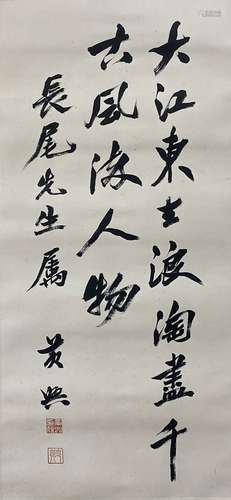 大江東去浪淘盡千
古風流人物
長尾先生属
黃興